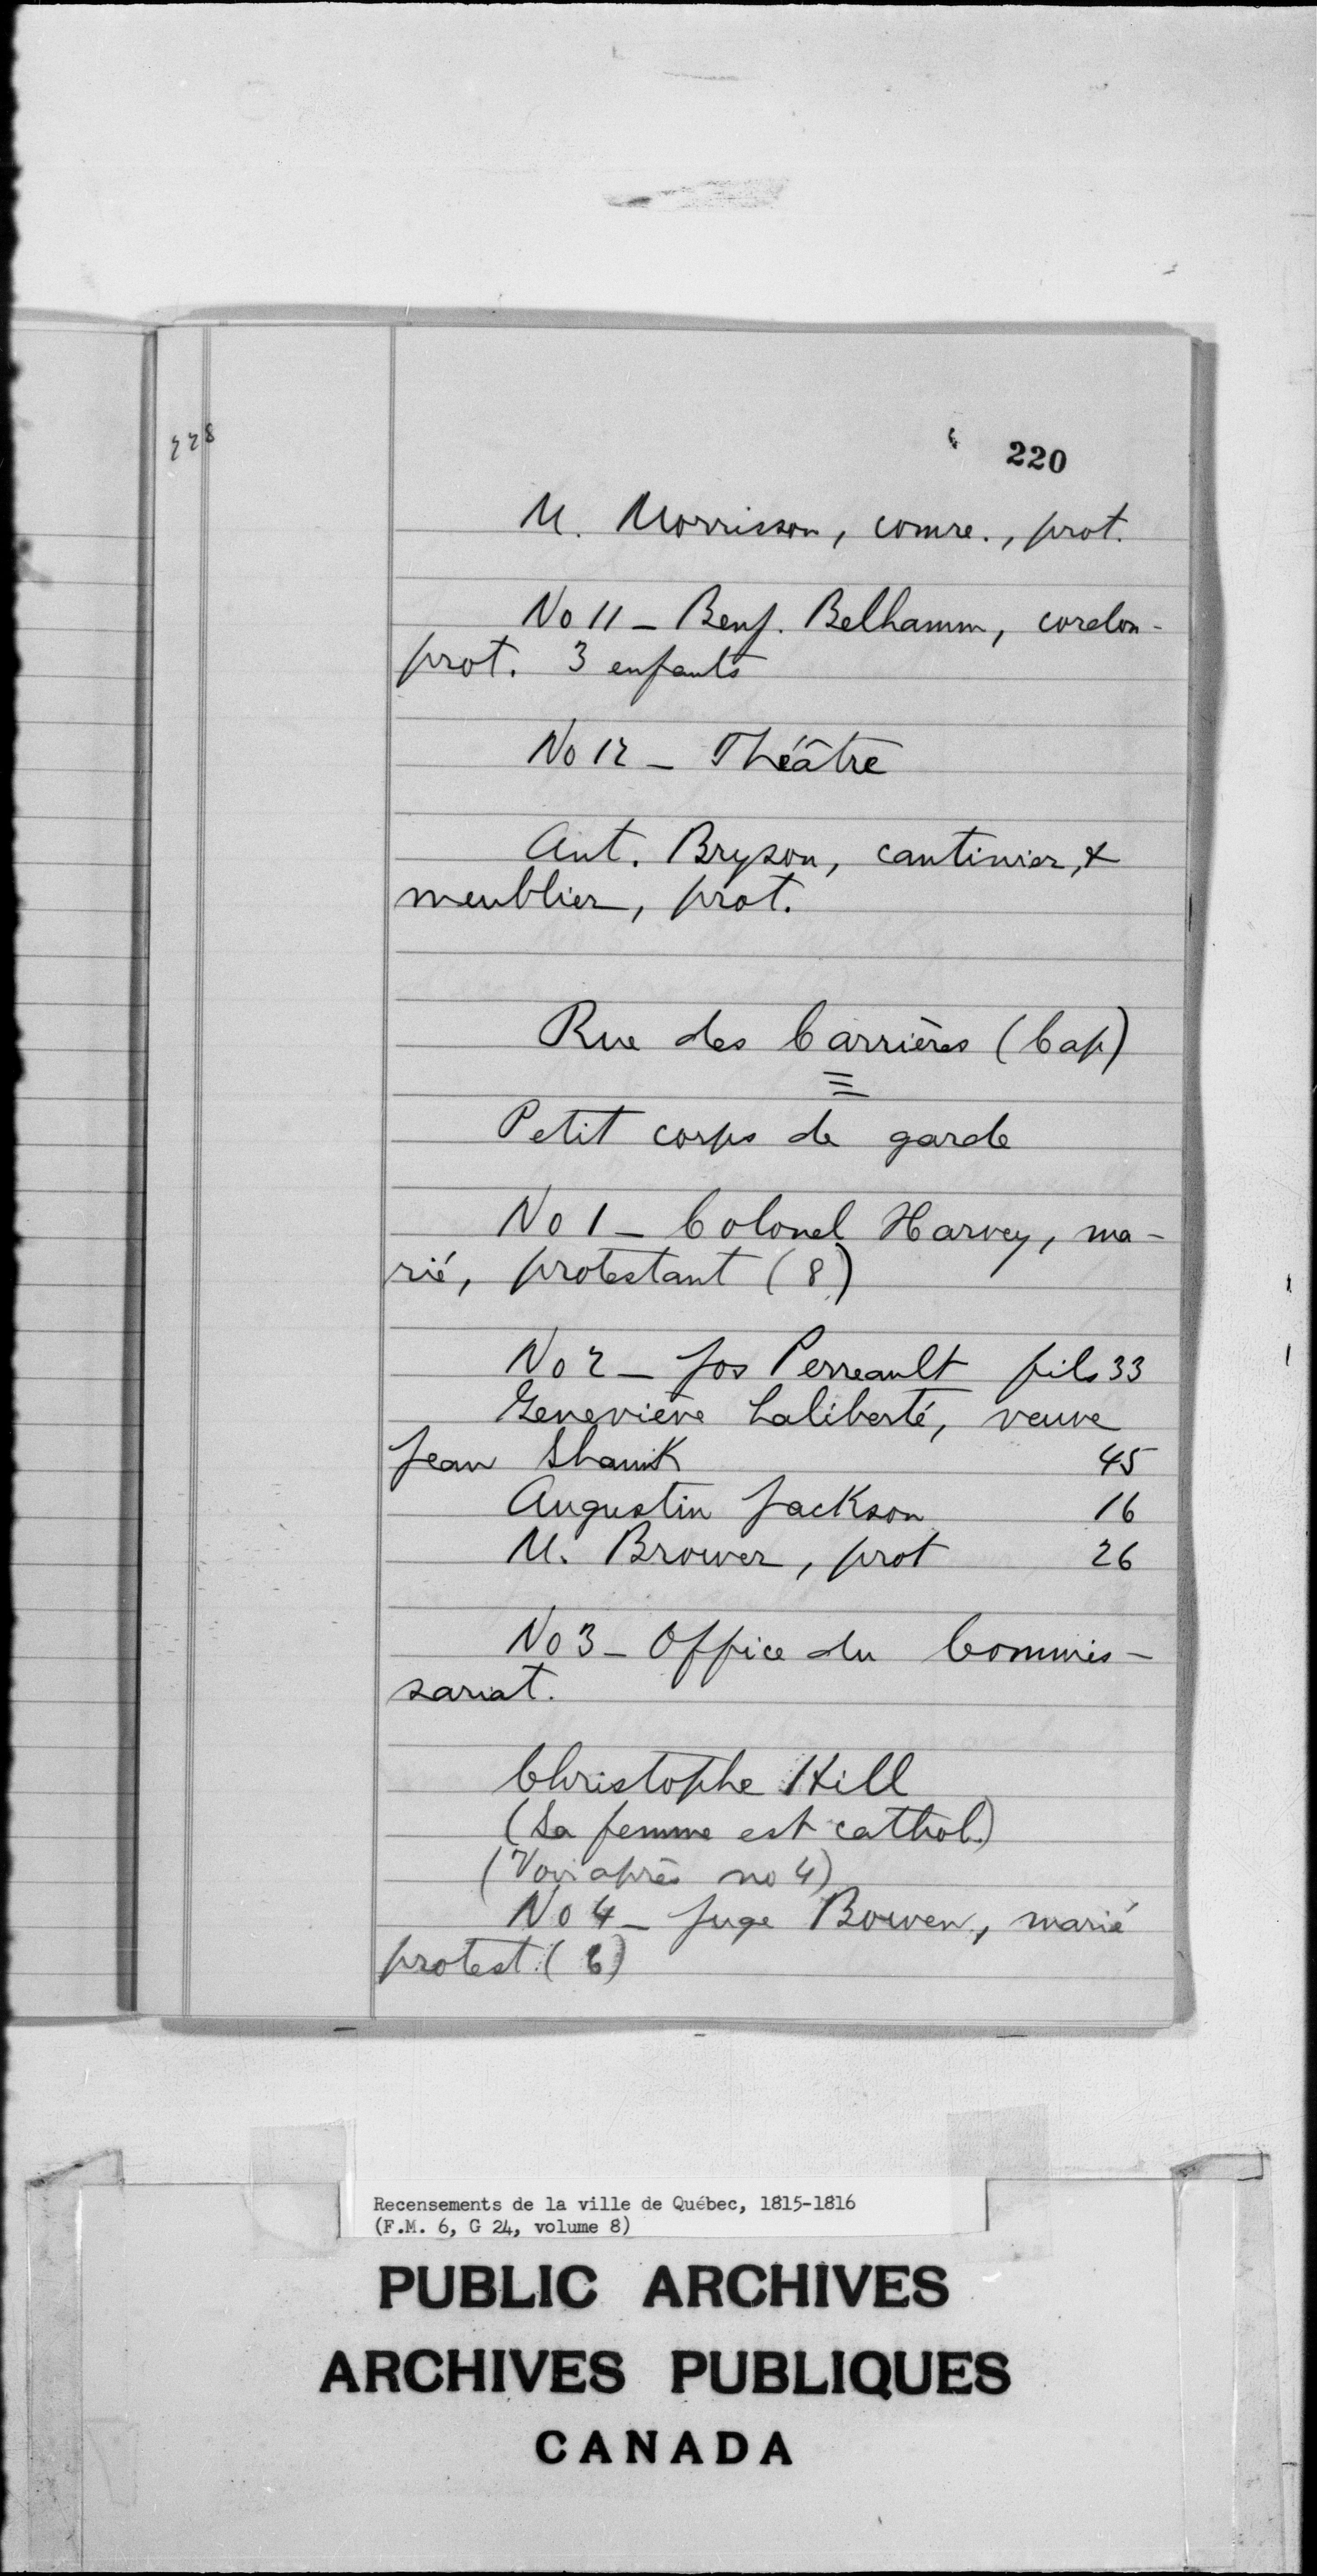 228
220
M. Morrisson, comre., prot.
No 11 - Benj. Belhamm, cordon-
prot. 3 enfants
No 12 - Théâtre
Ant. Bryson, cantinier, &
meublier, prot.
Rue des Carrières (Cap)
Petit corps de garde
No 1 - Colonel Harvey, ma-
rié, protestant (8)
No 2 - Jos Perreault fils 33
Geneviève Laliberté, veuve
Jean Shank 45
Augustin Jackson 16
M. Brower, prot 26
No 3 - Office du Commis-
sariat.
Christophe Hill
(Sa femme est cathol.)
(Voir après no 4)
No 4 - Juge Bowen, marié
protest. (6)
Recensements de la ville de Québec, 1815-1816
(F.M. 6, G 24, volume 8)
PUBLIC ARCHIVES
ARCHIVES PUBLIQUES
CANADA